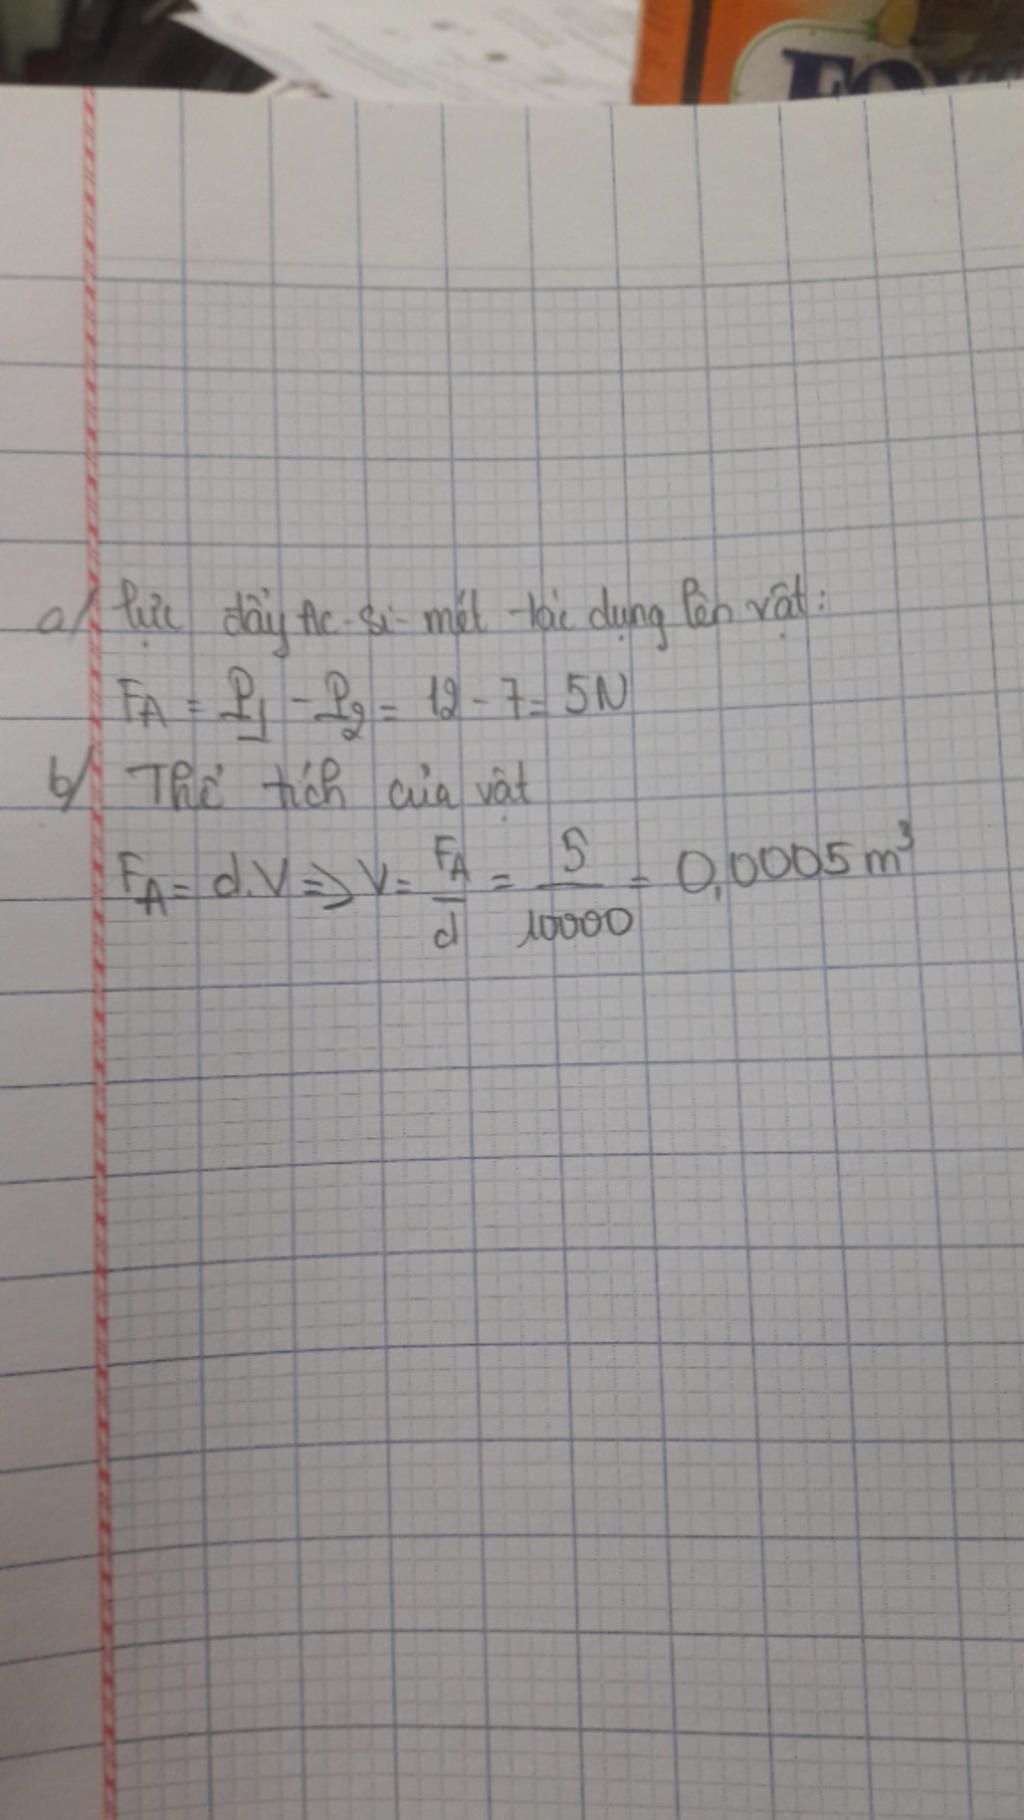 a/ lực đẩy Ac-si-mét tác dụng lên vật:
F_A = P_1 - P_2 = 12 - 7 = 5N
b/ Thể tích của vật
F_A = d.V => V = F_A/d = 5/10000 = 0,0005 m³